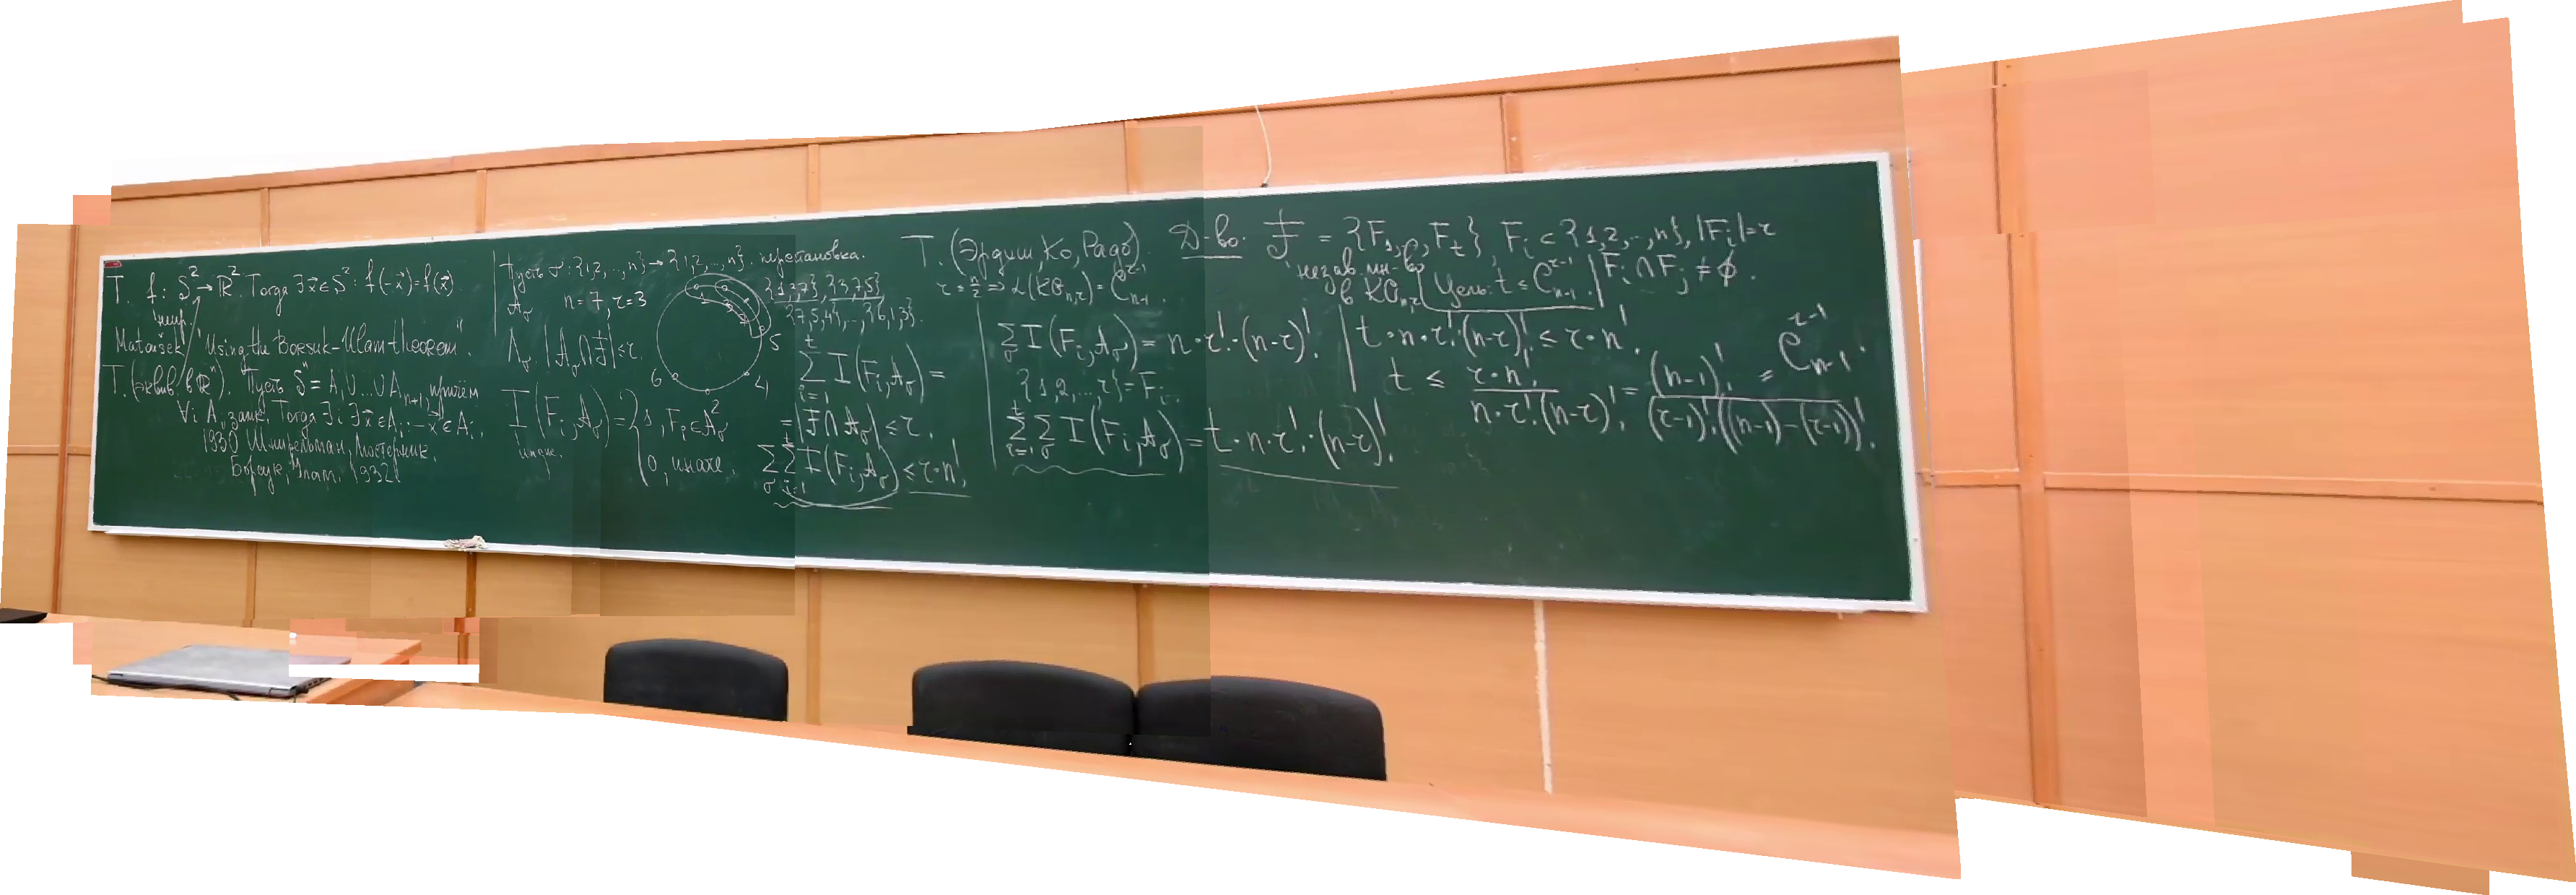 Т. f: S² → ℝ². Тогда ∃ x⃗ ∈ S²: f(-x⃗) = f(x⃗).
непр.
Matoušek "Using the Borsuk-Ulam theorem".
Т. (эквив. в ℝⁿ). Пусть Sⁿ = A₁∪...∪Aₙ₊₁, причём
∀i Aᵢ замк. Тогда ∃i ∃x⃗ ∈ Aᵢ: -x⃗ ∈ Aᵢ.
1930 Шнирельман, Люстерник.
Борсук, Улам. 1932
Пусть σ: {1,2,...,n} → {1,2,...,n}. перестановка.
𝒜_σ n=7, r=3
{1,3,7}, {3,7,5}
{7,5,4}, ..., {6,1,3}.
5
6 4
Л_σ. |𝒜_σ ∩ ℱ| ≤ r.
I(Fᵢ, 𝒜_σ) = { 1, Fᵢ ∈ 𝒜_σ
0, иначе.
индик.
∑ᵢ₌₁ᵗ I(Fᵢ, 𝒜_σ) =
= |ℱ ∩ 𝒜_σ| ≤ r.
∑_σ ∑ᵢ₌₁ᵗ I(Fᵢ, 𝒜_σ) ≤ r·n!
Т. (Эрдиш, Ко, Радо).
r ≤ n/2 ⇒ α(KG_{n,r}) = C_{n-1}^{r-1}.
Д-во. ℱ = {F₁,..,F_t}, Fᵢ ⊂ {1,2,...,n}, |Fᵢ| = r
незав. мн-во
в KG_{n,r}
Цель: t ≤ C_{n-1}^{r-1}.
Fᵢ ∩ Fⱼ ≠ ∅.
∑_σ I(Fᵢ, 𝒜_σ) = n·r!·(n-r)!
{1,2,...,r} = Fᵢ
∑ᵢ₌₁ᵗ ∑_σ I(Fᵢ, 𝒜_σ) = t·n·r!·(n-r)!
t·n·r!·(n-r)! ≤ r·n!
t ≤ r·n! / (n·r!·(n-r)!) = (n-1)! / ((r-1)!·((n-1)-(r-1))!) = C_{n-1}^{r-1}.